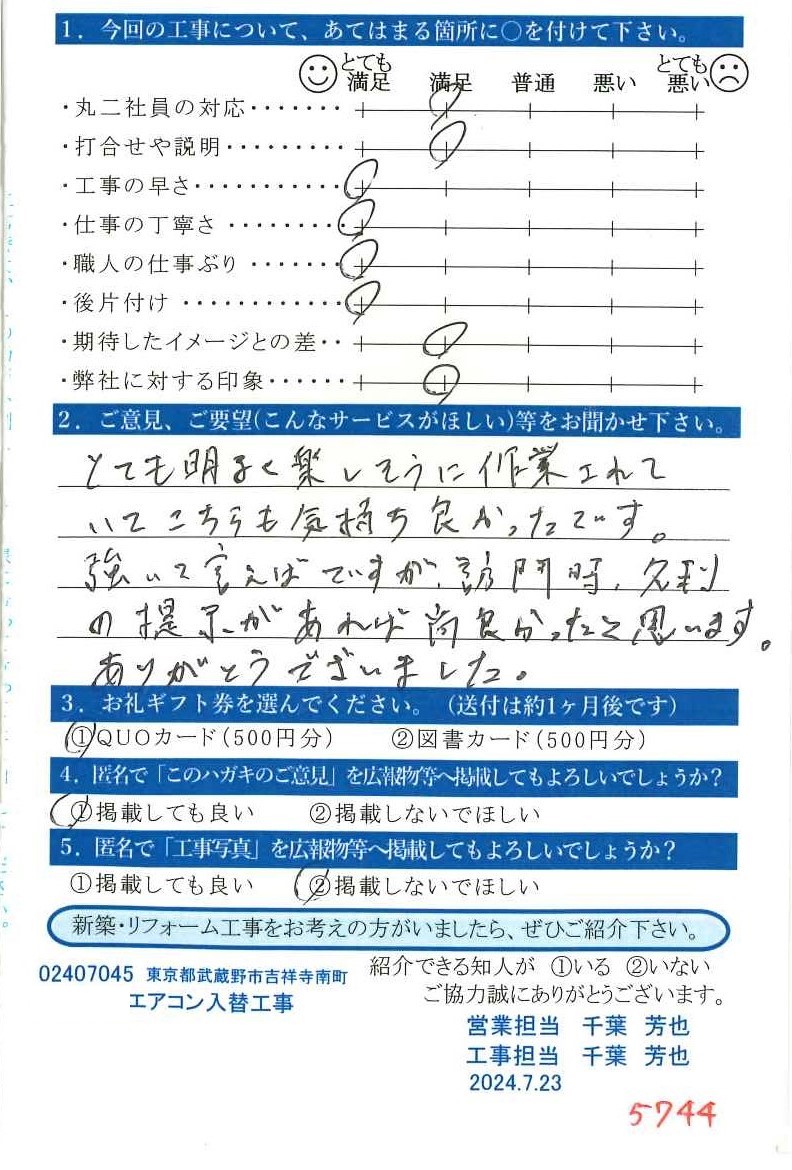 1. 今回の工事について、あてはまる箇所に○を付けて下さい。
とても満足 満足 普通 悪い とても悪い
・丸二社員の対応・・・・・・・
・打合せや説明・・・・・・・・・
・工事の早さ・・・・・・・・・・・
・仕事の丁寧さ ・・・・・・・・
・職人の仕事ぶり ・・・・・・・
・後片付け ・・・・・・・・・・・・
・期待したイメージとの差・・
・弊社に対する印象・・・・・・
2. ご意見、ご要望(こんなサービスがほしい)等をお聞かせ下さい。
とても明るく楽しそうに作業されて
いてこちらも気持ち良かったです。
強いて言えばですが、訪問時、名刺
の提示があれば尚良かったと思います。
ありがとうございました。
3. お礼ギフト券を選んでください。（送付は約1ヶ月後です）
①QUOカード(500円分) ②図書カード(500円分)
4. 匿名で「このハガキのご意見」を広報物等へ掲載してもよろしいでしょうか?
①掲載しても良い ②掲載しないでほしい
5. 匿名で「工事写真」を広報物等へ掲載してもよろしいでしょうか?
①掲載しても良い ②掲載しないでほしい
新築・リフォーム工事をお考えの方がいましたら、ぜひご紹介下さい。
紹介できる知人が ①いる ②いない
ご協力誠にありがとうございます。
02407045 東京都武蔵野市吉祥寺南町
エアコン入替工事
営業担当 千葉 芳也
工事担当 千葉 芳也
2024.7.23
5744